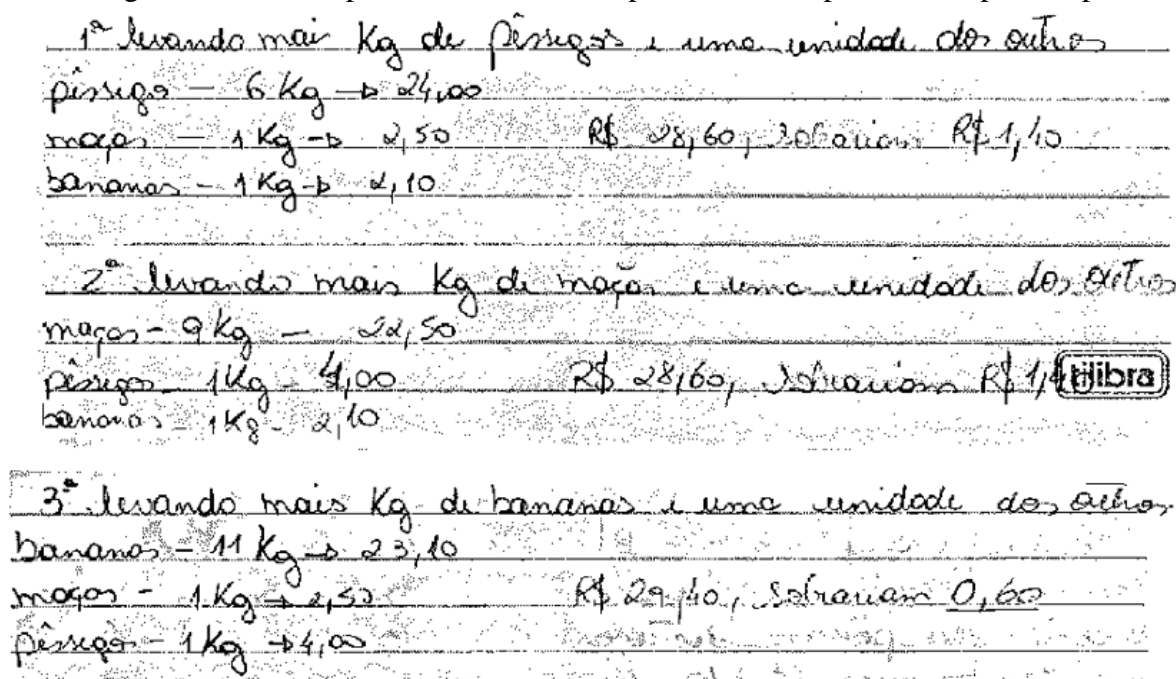 1ª levando mais Kg de pêssegos e uma unidade dos outros
pêssego — 6 Kg → 24,00
maças — 1 Kg → 2,50 R$ 28,60, sobrariam R$ 1,40
bananas - 1 Kg → 2,10
2ª levando mais Kg de maças e uma unidade dos outros
maças - 9 Kg — 22,50
pêssegos - 1 Kg - 4,00 R$ 28,60, sobrariam R$ 1,4 tilibra
bananas - 1 Kg - 2,10
3ª levando mais Kg de bananas e uma unidade dos outros
bananas - 11 Kg → 23,10
maças - 1 Kg → 2,50 R$ 29,40, sobrariam 0,60
pêssego - 1 Kg → 4,00